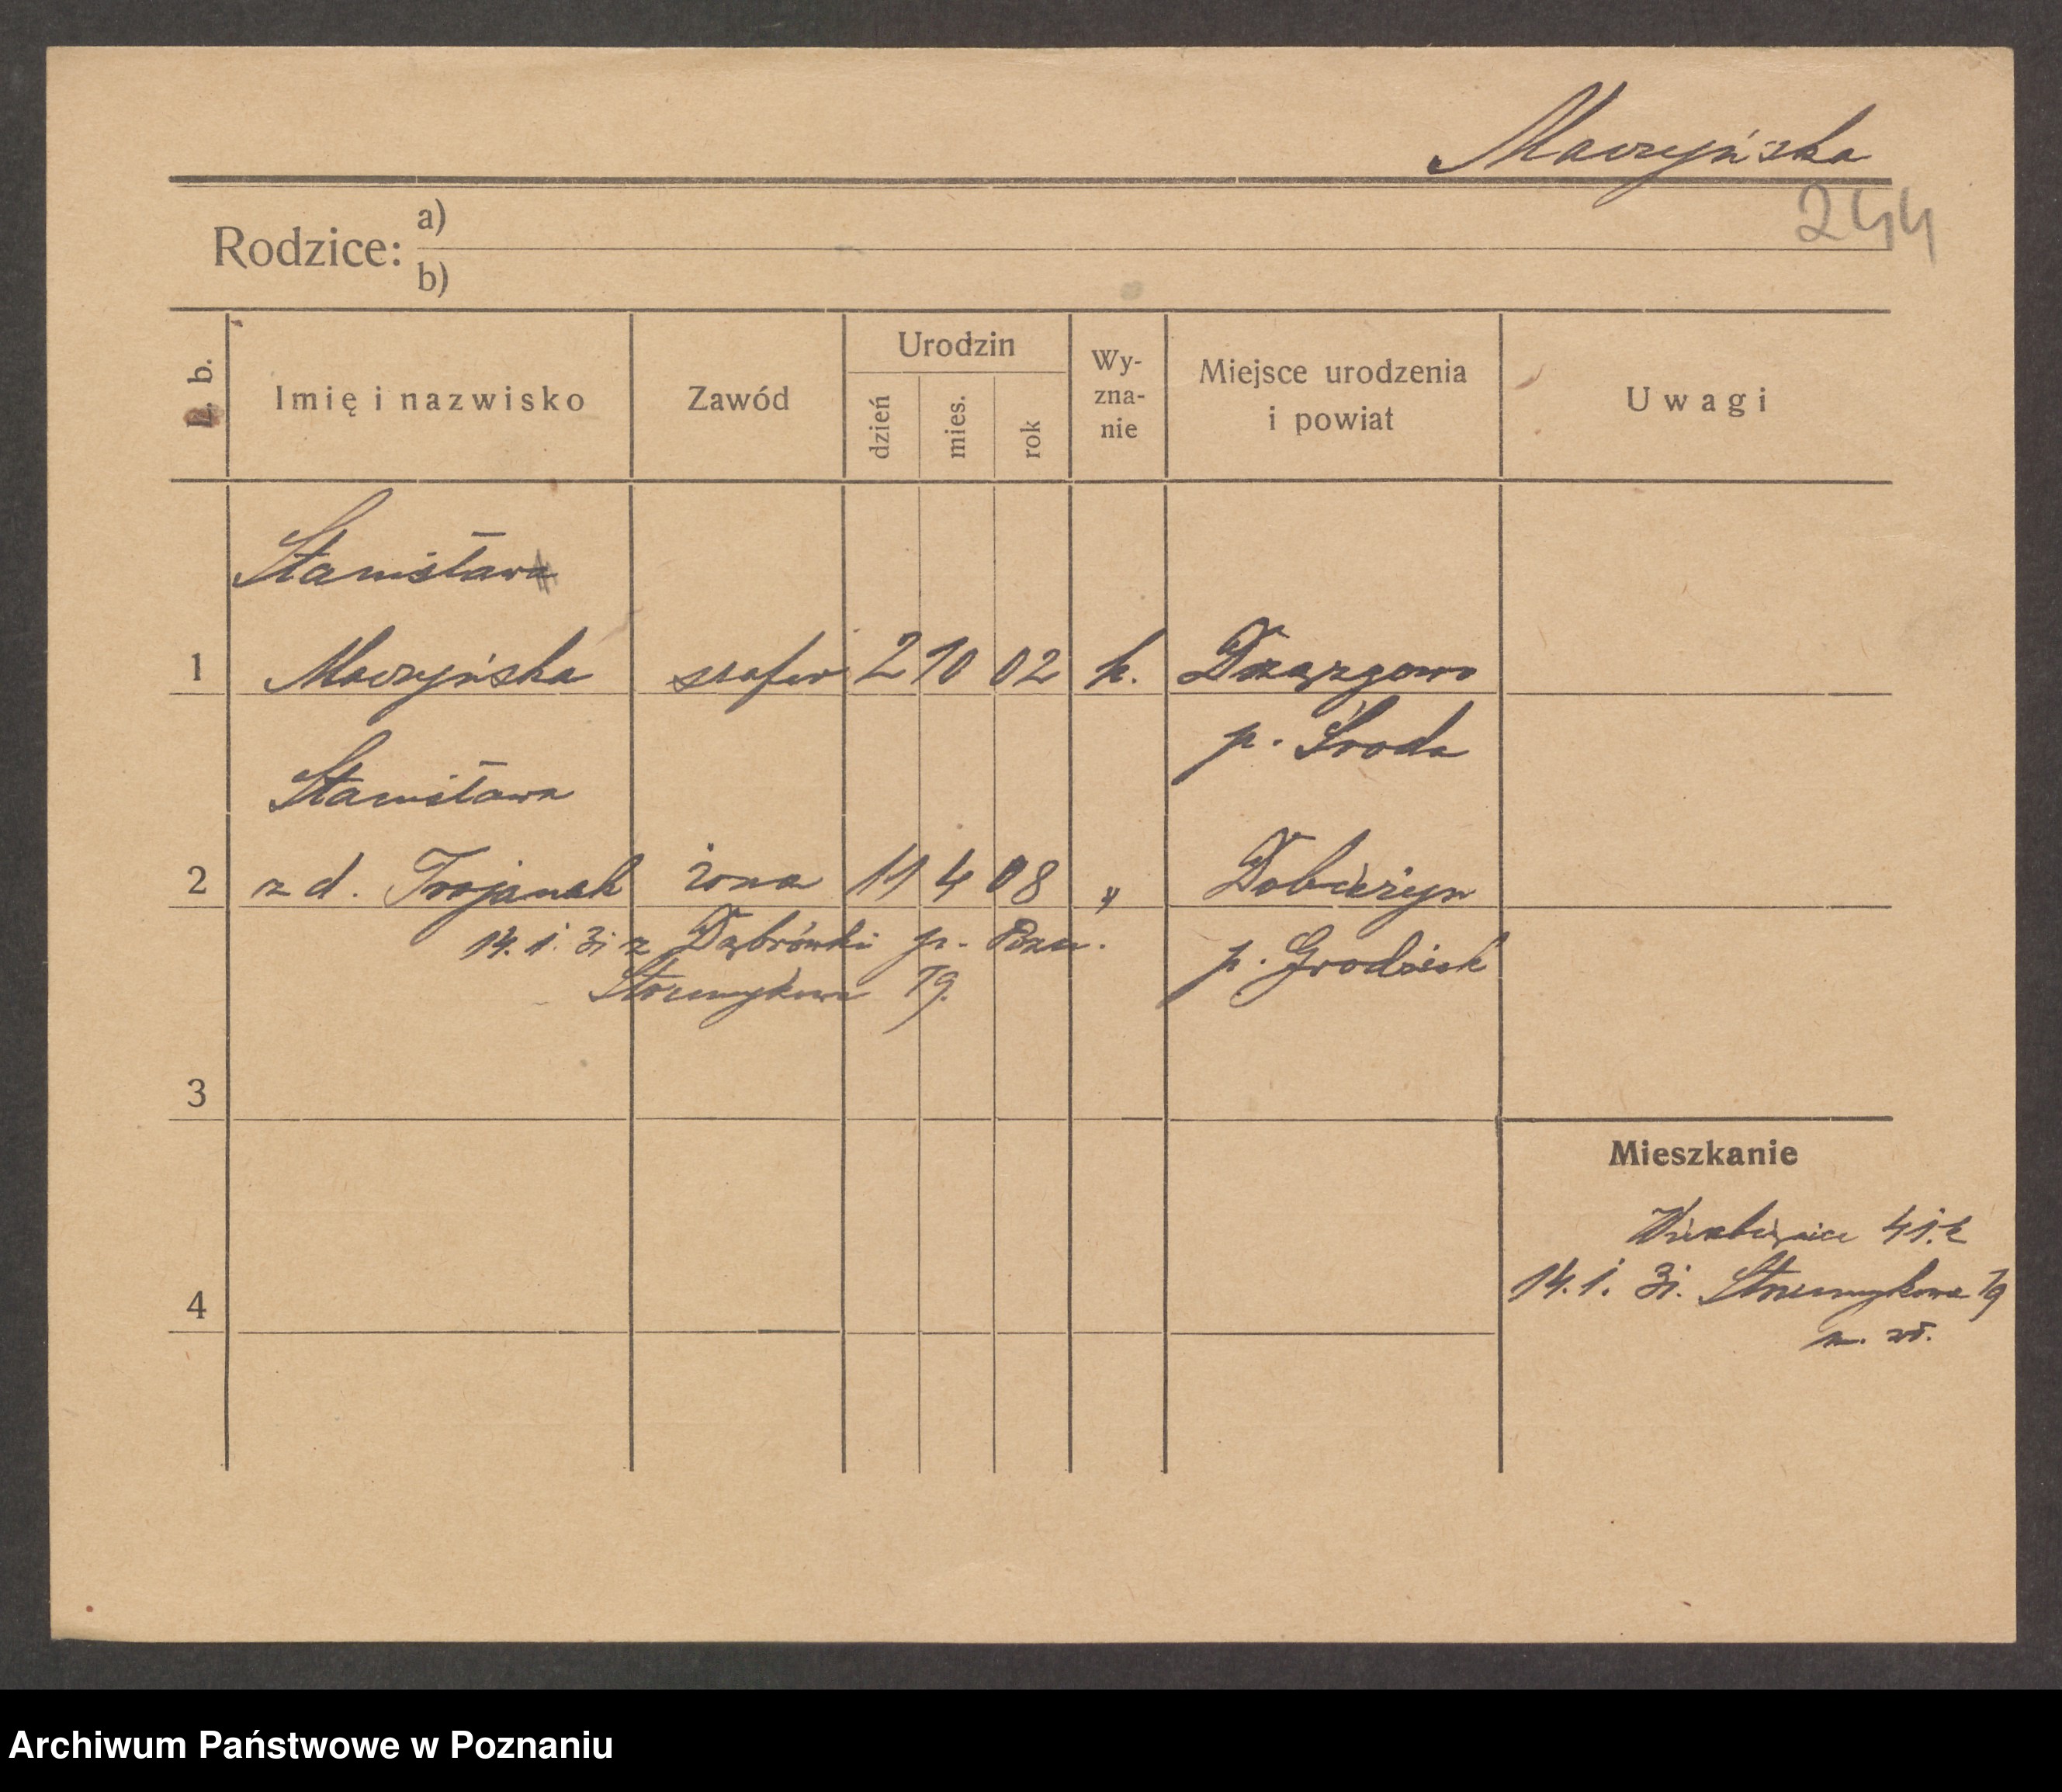 Maczyńska
244
Rodzice: a)
b)
L. b. Imię i nazwisko Zawód Urodzin dzień mies. rok Wy-zna-nie Miejsce urodzenia i powiat Uwagi
Stanisława
1 Maczyńska szofer 2 10 02 k. Drzązgowo
p. Środa
Stanisława
2 z d. Trojanek żona 11 4 08 " Dobieżyn
14.1.31 z Dąbrówki p. Pozn. p. Grodzisk
Strumykowa 19.
3
Mieszkanie
Wierzbięcice 41.
14.1. 31. Strumykowa 19
4
Archiwum Państwowe w Poznaniu